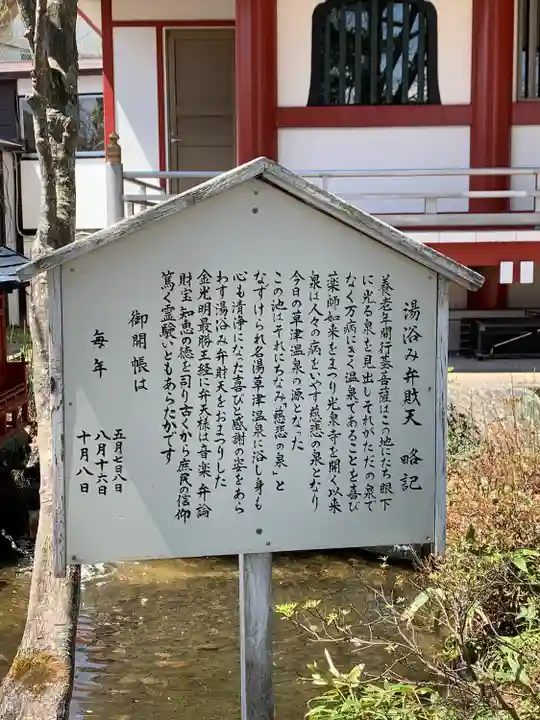 湯浴み弁財天　略記
養老年間行基菩薩はこの地にたち眼下
に光る泉を見出しそれがただの泉で
なく万病にきく温泉であることを喜び
薬師如来をまつり光泉寺を開く以来
泉は人々の病をいやす慈悲の泉となり
今日の草津温泉の源となった
この池はそれにちなみ「慈悲の泉」と
なずけられ名湯草津温泉に浴し身も
心も清浄になった喜びと感謝の姿をあら
わす湯浴み弁財天をおまつりした
金光明最勝王経に弁天様は音楽 弁論
財宝 知恵の徳を司り古くから庶民の信仰
篤く霊験いともあらたかです
御開帳は
毎年
五月七八日
八月十六日
十月八日